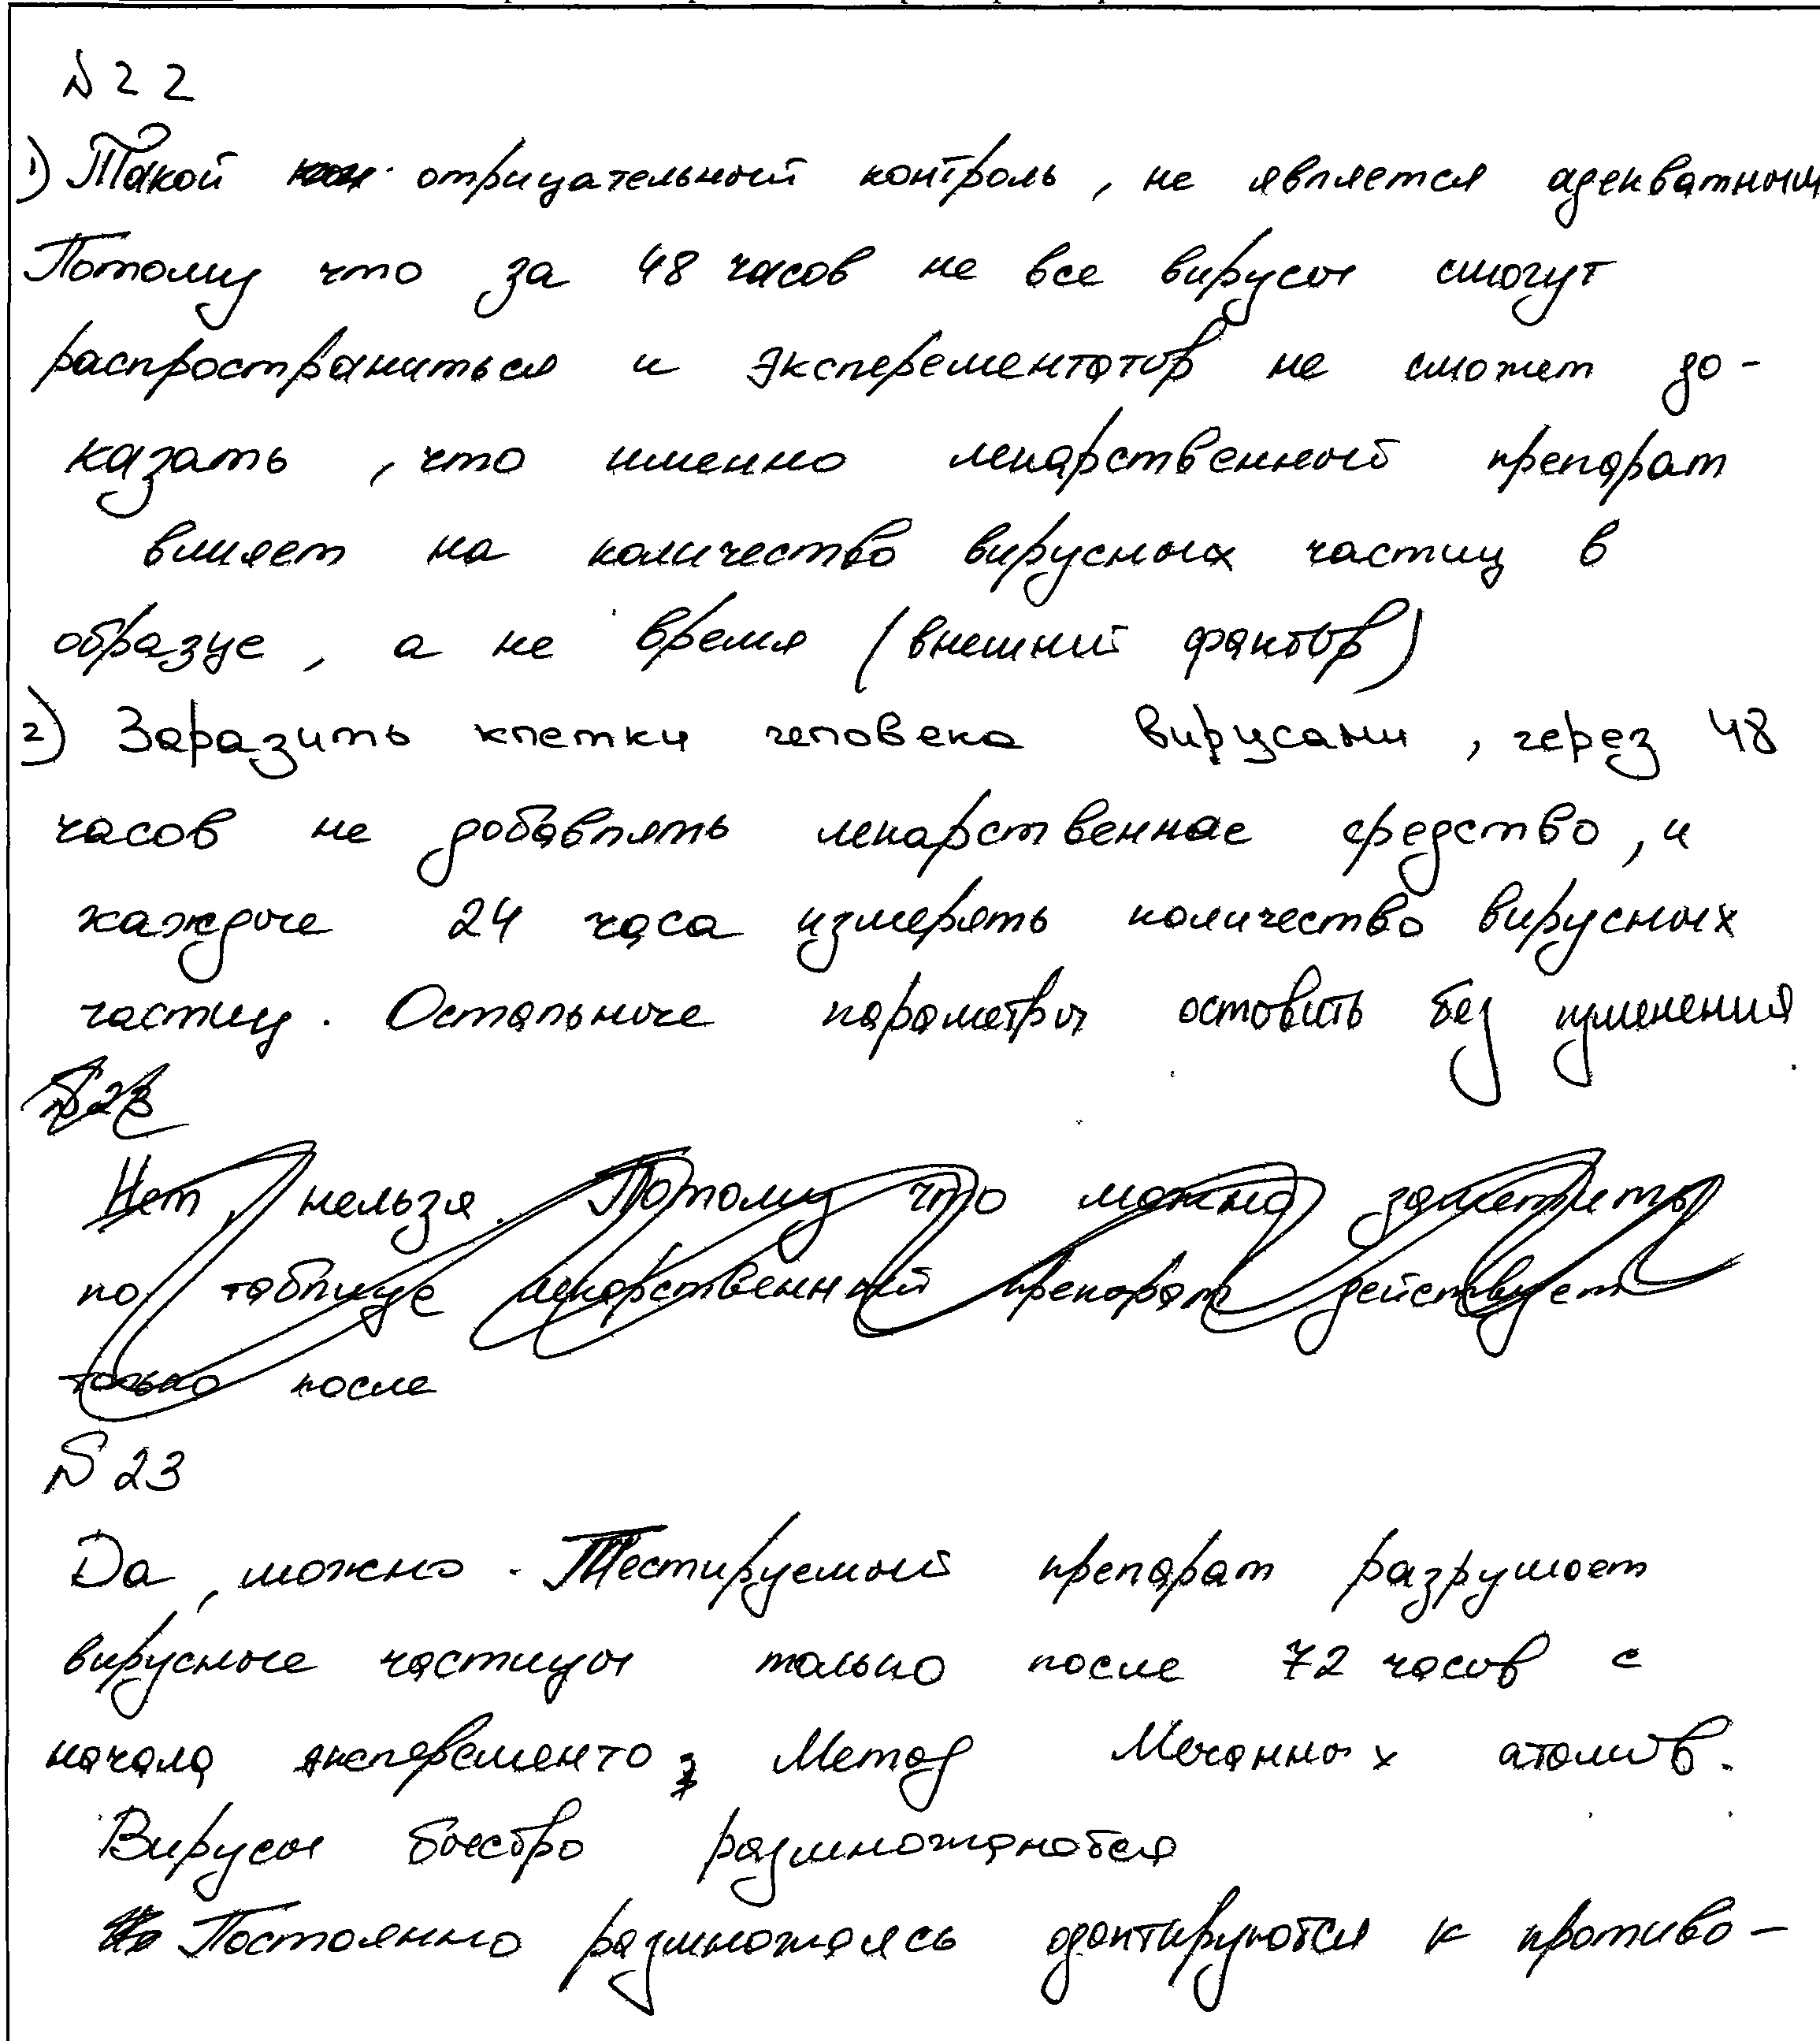 № 22
1) Такой кон отрицательный контроль, не является адекватным
Потому что за 48 часов не все вирусы смогут
распространиться и эксперементатор не сможет до-
казать, что именно лекарственный препарат
влияет на количество вирусных частиц в
образце, а не время (внешний фактор)
2) Заразить клетки человека вирусами, через 48
часов не добавлять лекарственное средство, и
каждые 24 часа измерять количество вирусных
частиц. Остальные параметры оставить без изменения.
№ 23
Нет, нельзя. Потому что можно заметить
по таблице лекарственный препарат действует
только после
№ 23
Да, можно. Тестируемый препарат разрушает
вирусные частицы только после 72 часов с
начала эксперемента; Метод Мечанных атомов.
Вирусы быстро размножаются
Постоянно размножаясь адаптируются к противо-